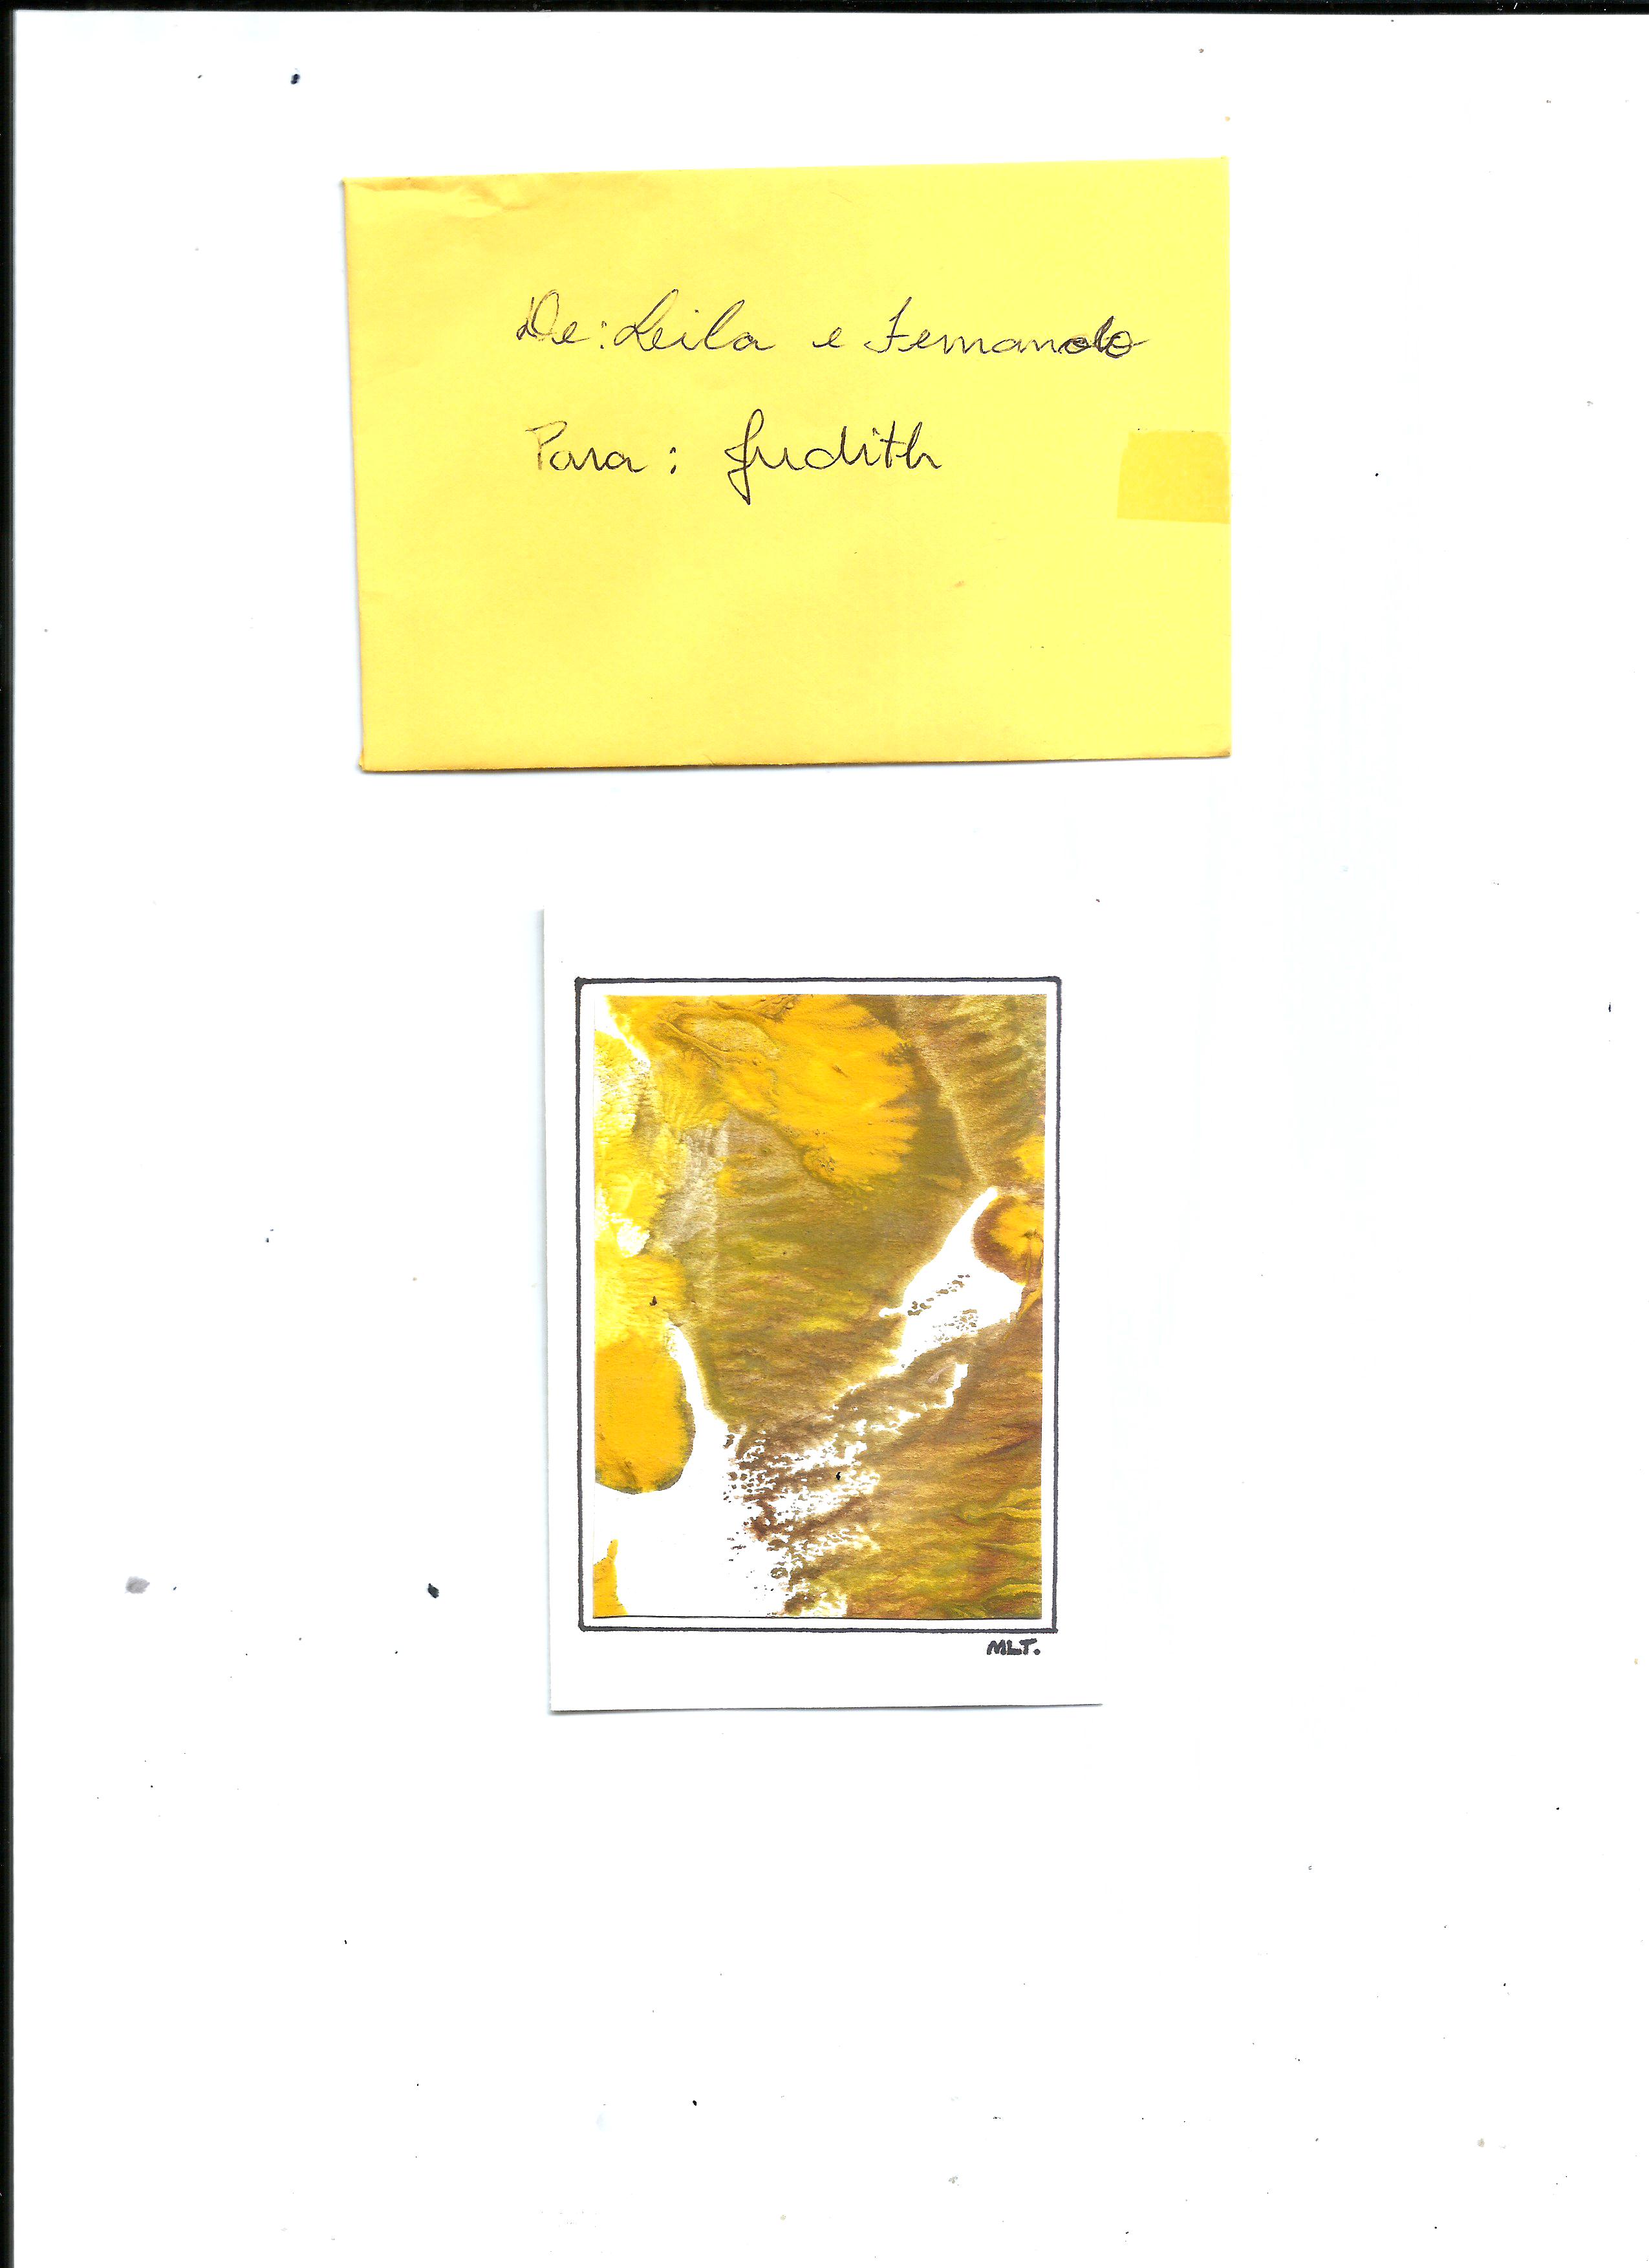 De: Leila e Fernando
Para: Judith
MLT.